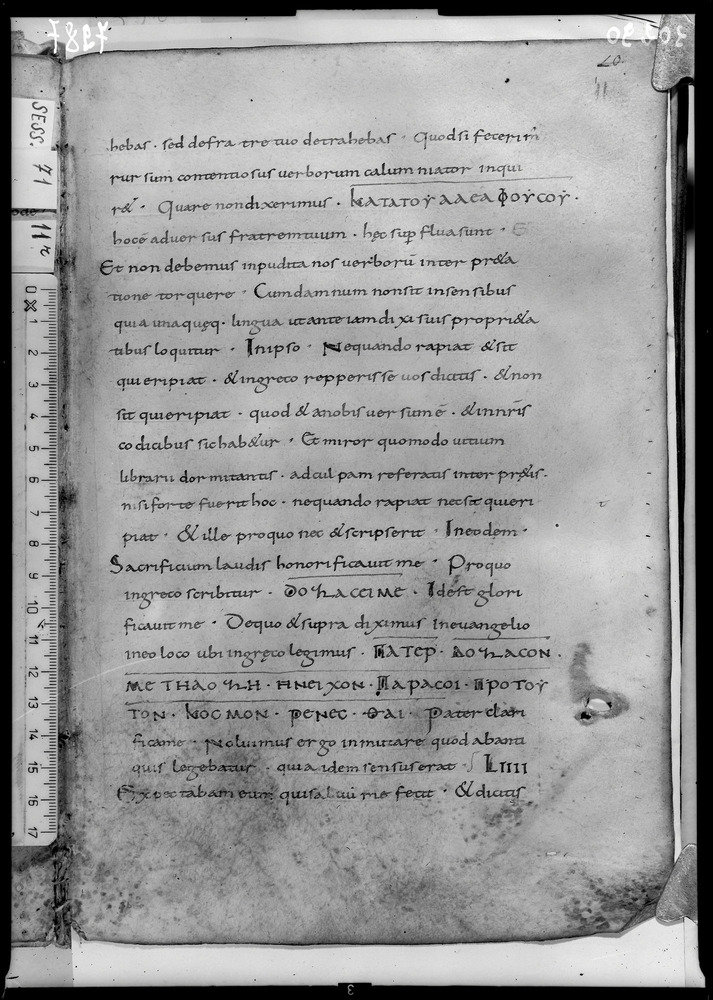 7987
30290
20
11
SESS. 71
11r
hebas · sed defra tre tuo detrahebas · Quodsi fecerim
rur sum contentiosus uerborum calum niator inqui
r& · Quare nondixerimus · ΚΑΤΑΤΟΥ ΑΔΕΛΦΟΥ CΟΥ ·
hoc e aduer sus fratremtuum · hęc sup flua sunt ·
Et non debemus inputida nos uerborū inter pr&a
tione tor quere · Cumdamnum nonsit insensibus
quia unaquęq· lingua utante iam diximus propri&a
tibus loquitur · Inipso · Nequando rapiat &sit
quieripiat · & ingreco repperisse uos dicitis · & non
sit quieripiat · quod & anobis uersum ē · & innr̄is
codicibus sichab&ur · Et miror quomodo uitium
librarii dormitantis · adculpam referatis inter pr&is ·
nisiforte fuerit hoc · nequando rapiat necsit quieri
piat · & ille proquo nec &scripserit · Ineodem ·
Sacrificium laudis honorificauit me · Proquo
ingreco scribitur · ΔΟΞΑCΕΙ ΜΕ · Id est glori
ficauit me · Dequo &supra diximus inevangelio
ineo loco ubi ingręco legimus · ΠΑΤΕΡ · ΔΟΞΑCΟΝ ·
ΜΕ ΤΗ ΔΟΞΗ · Η ΝΕΙΧΟΝ · ΠΑΡΑ CΟΙ · ΠΡΟ ΤΟΥ
ΤΟΝ · ΚΟCΜΟΝ · ΡΕΝΕC · ΘΑΙ · Pater clari
ficame · Noluimus ergo inmutare quod abanti
quis legebatur · quia idem sensus erat · LIIII
Expectabam eum qui saluū me fecit · & dicitis
0 1 2 3 4 5 6 7 8 9 10 11 12 13 14 15 16 17
3